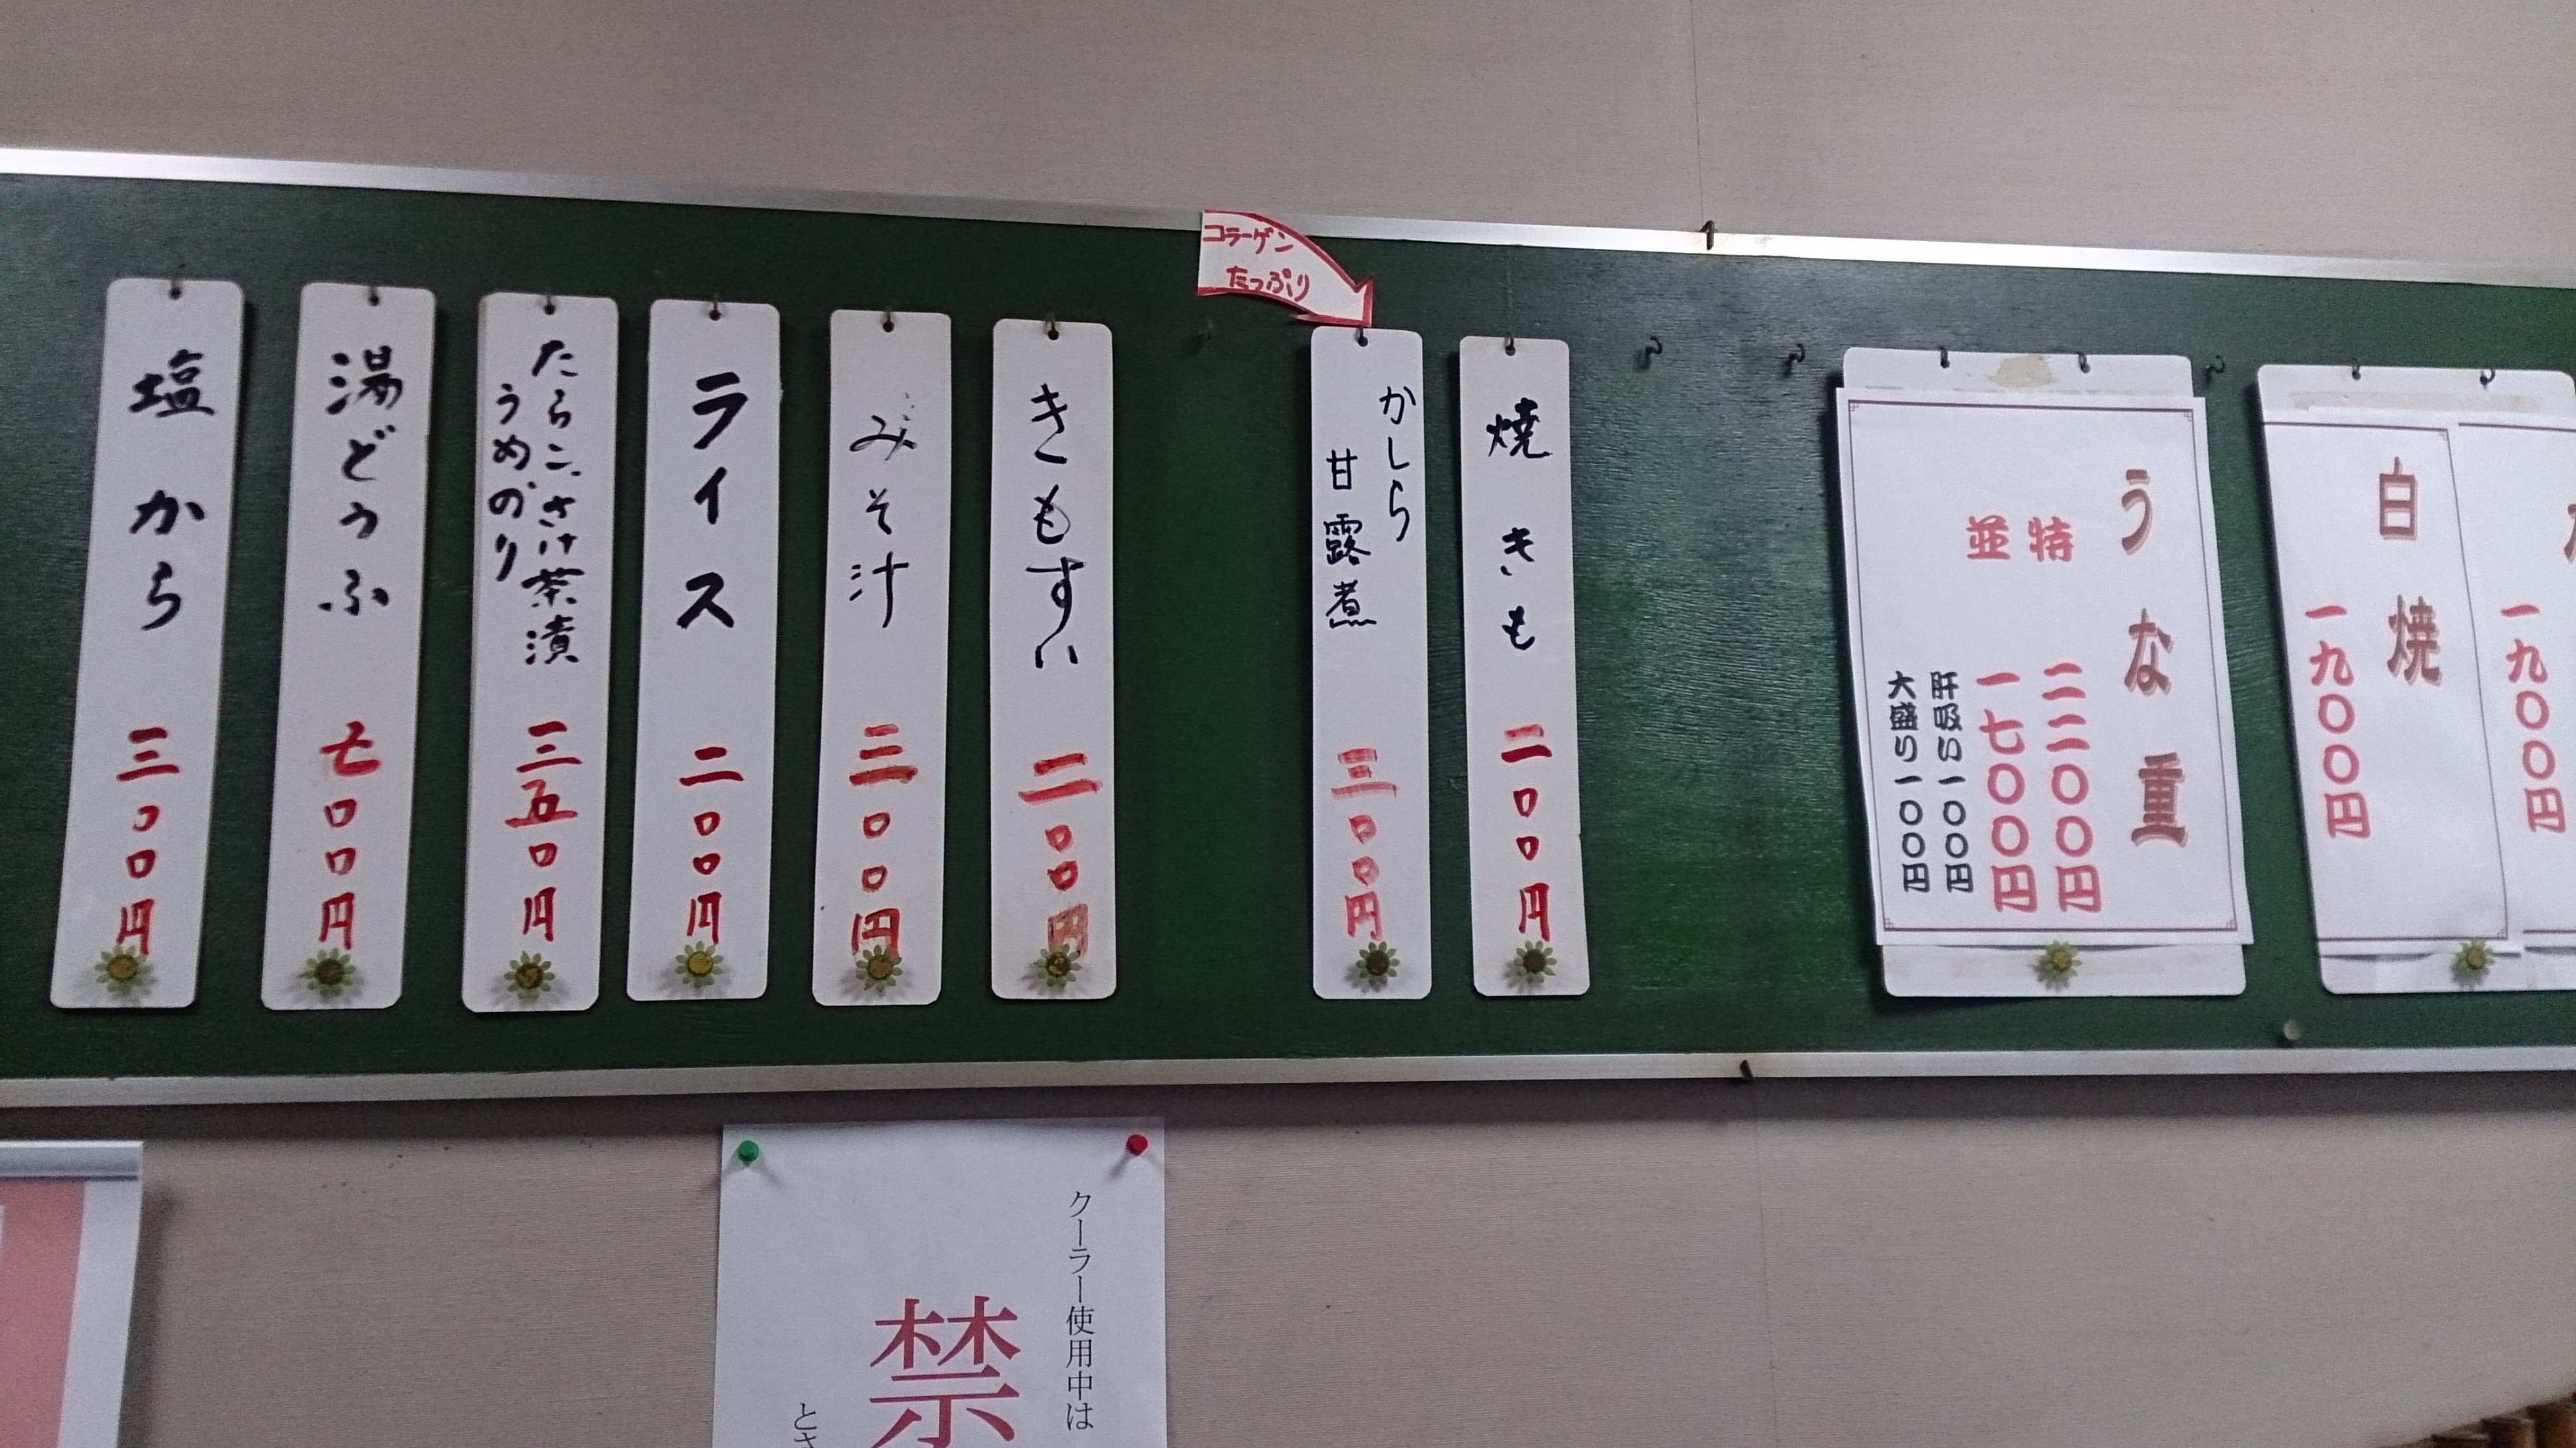 白焼
一九〇〇円
一九〇〇円
うな重
特 二二〇〇円
並 一七〇〇円
肝吸い一〇〇円
大盛り一〇〇円
焼きも
二〇〇円
コラーゲン
たっぷり
かしら
甘露煮
三〇〇円
きもすい
二〇〇円
みそ汁
三〇〇円
ライス
二〇〇円
たらこ、さけ茶漬
うめのり
三五〇円
湯どうふ
七〇〇円
塩から
三〇〇円
クーラー使用中は
禁
とさ